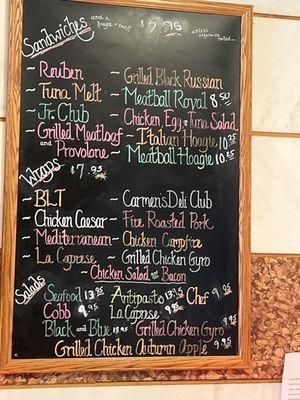 Sandwiches and a $7.95 unless otherwise noted...
~ Reuben ~ Grilled Black Russian
~ Tuna Melt ~ Meatball Royal 8.50
~ Jr. Club ~ Chicken, Egg or Tuna Salad
~ Grilled Meatloaf and Provolone ~ Italian Hoagie 10.25
~ Meatball Hoagie 10.25
Wraps $7.95
~ BLT ~ Carmen's Deli Club
~ Chicken Caesar ~ Fire Roasted Pork
~ Mediterranean ~ Chicken Campfire
~ La Caprese ~ Grilled Chicken Gyro
~ Chicken Salad and Bacon
Salads
Seafood 13.95 Antipasto 13.95 Chef 9.95
Cobb 9.95 La Caprese 9.95
Black and Blue 13.95 Grilled Chicken Gyro 9.95
Grilled Chicken Autumn Apple 9.95